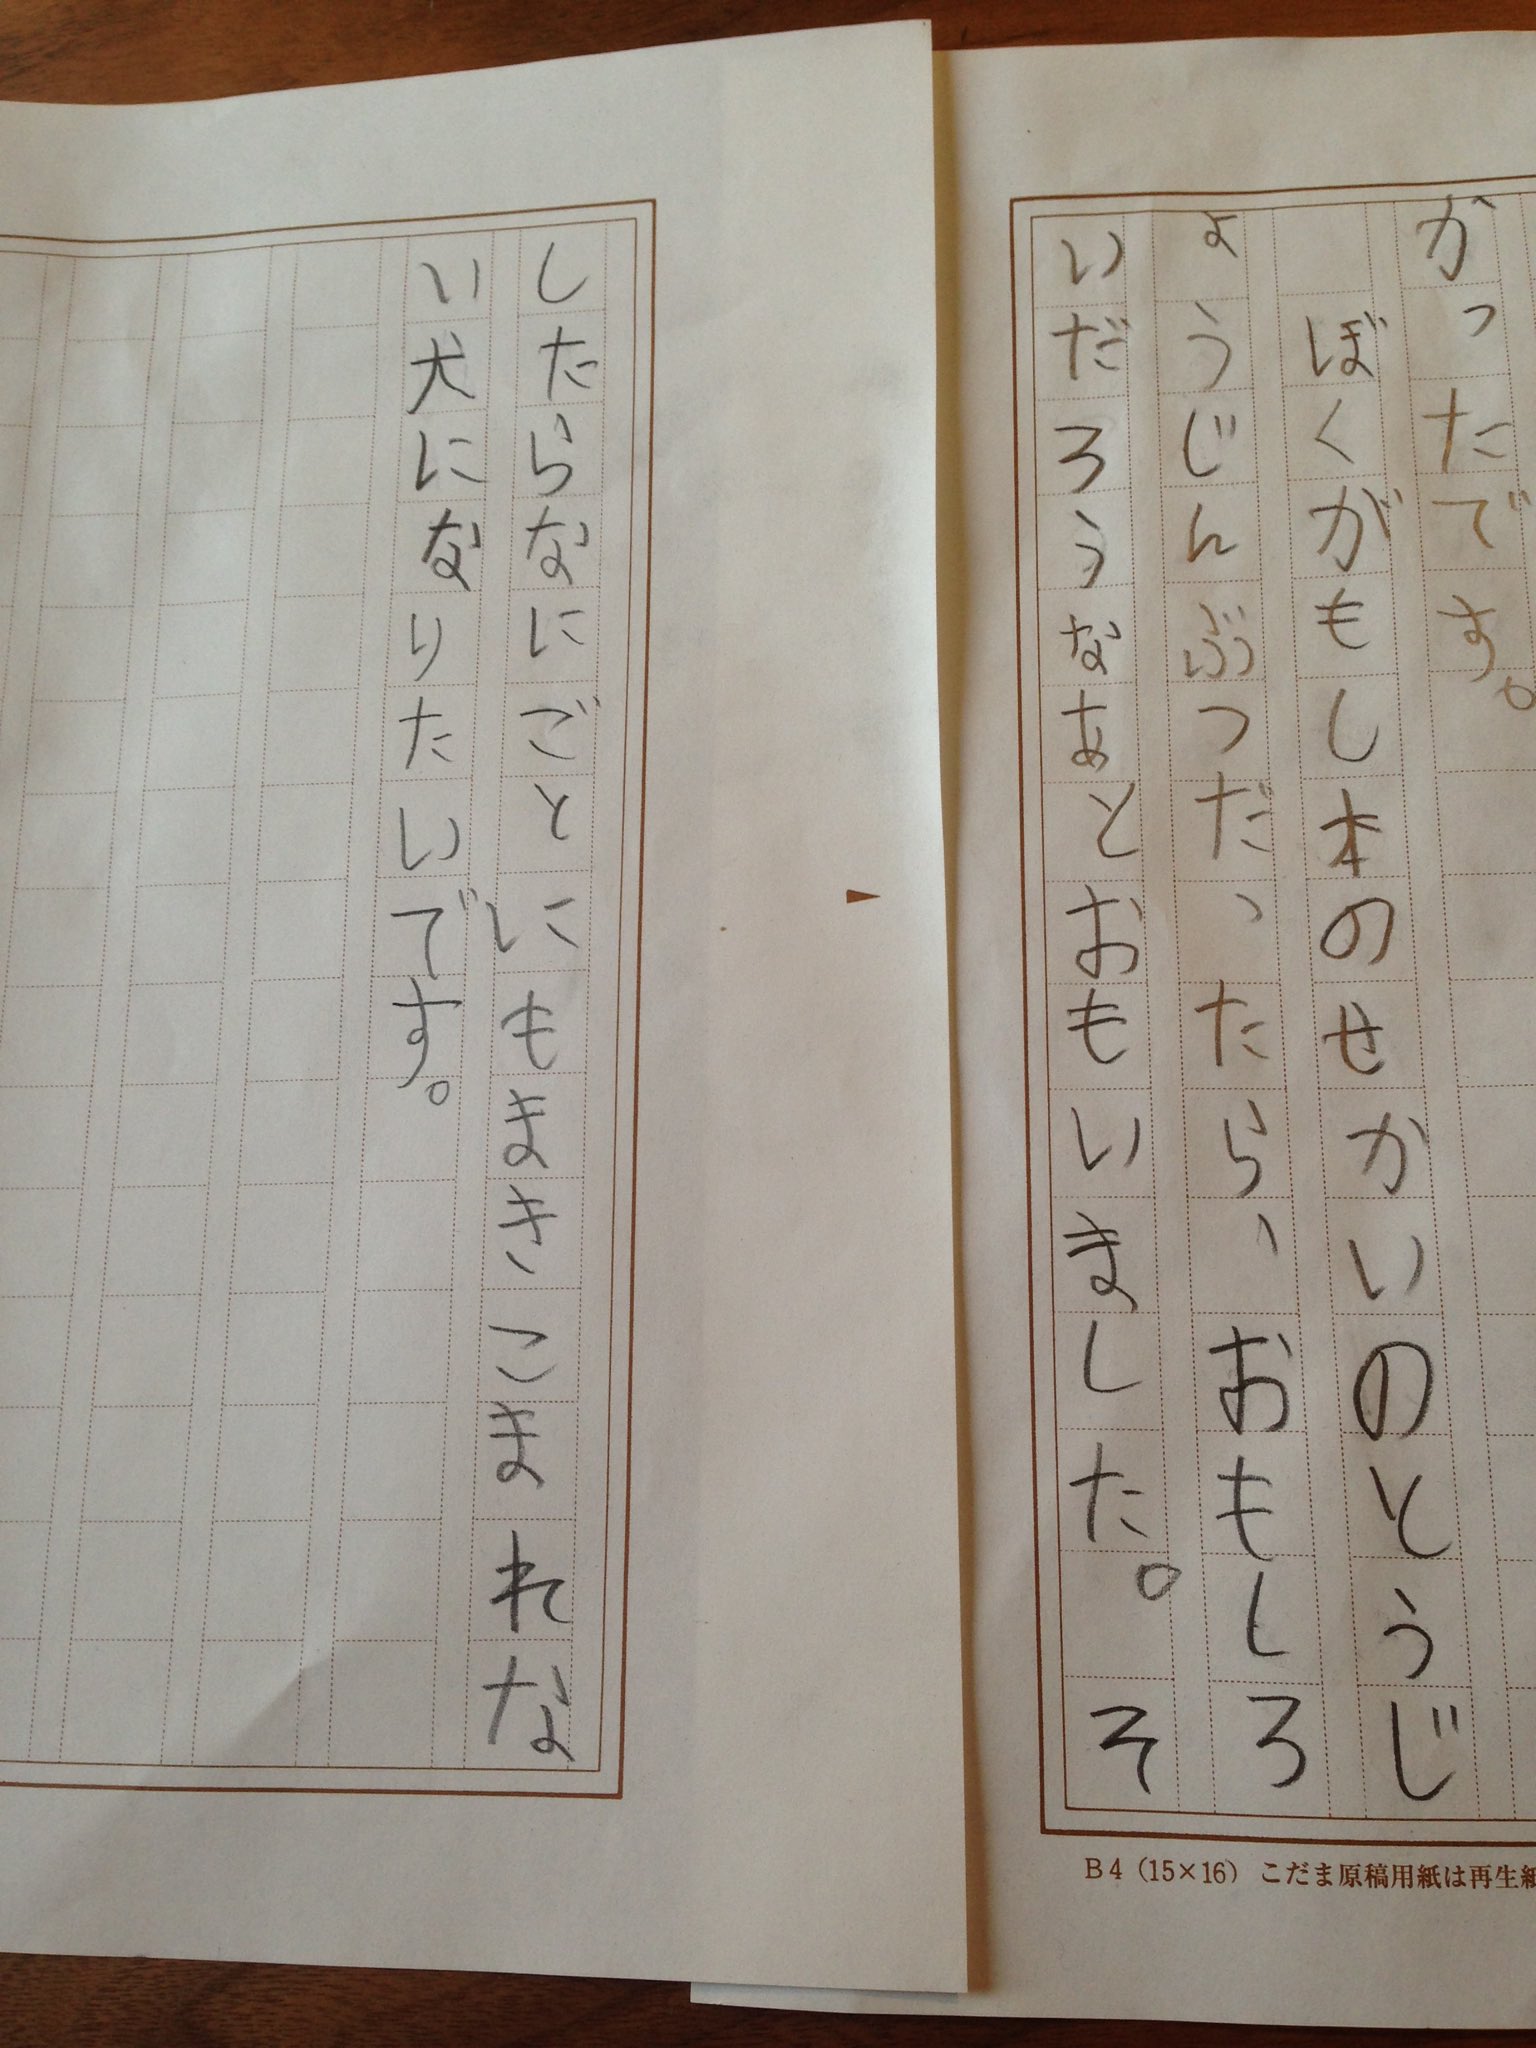 かったです。
ぼくがもし本のせかいのとうじ
ょうじんぶつだったら、おもしろ
いだろうなぁとおもいました。そ
B4(15×16) こだま原稿用紙は再生紙
したらなにごとにもまきこまれな
い犬になりたいです。